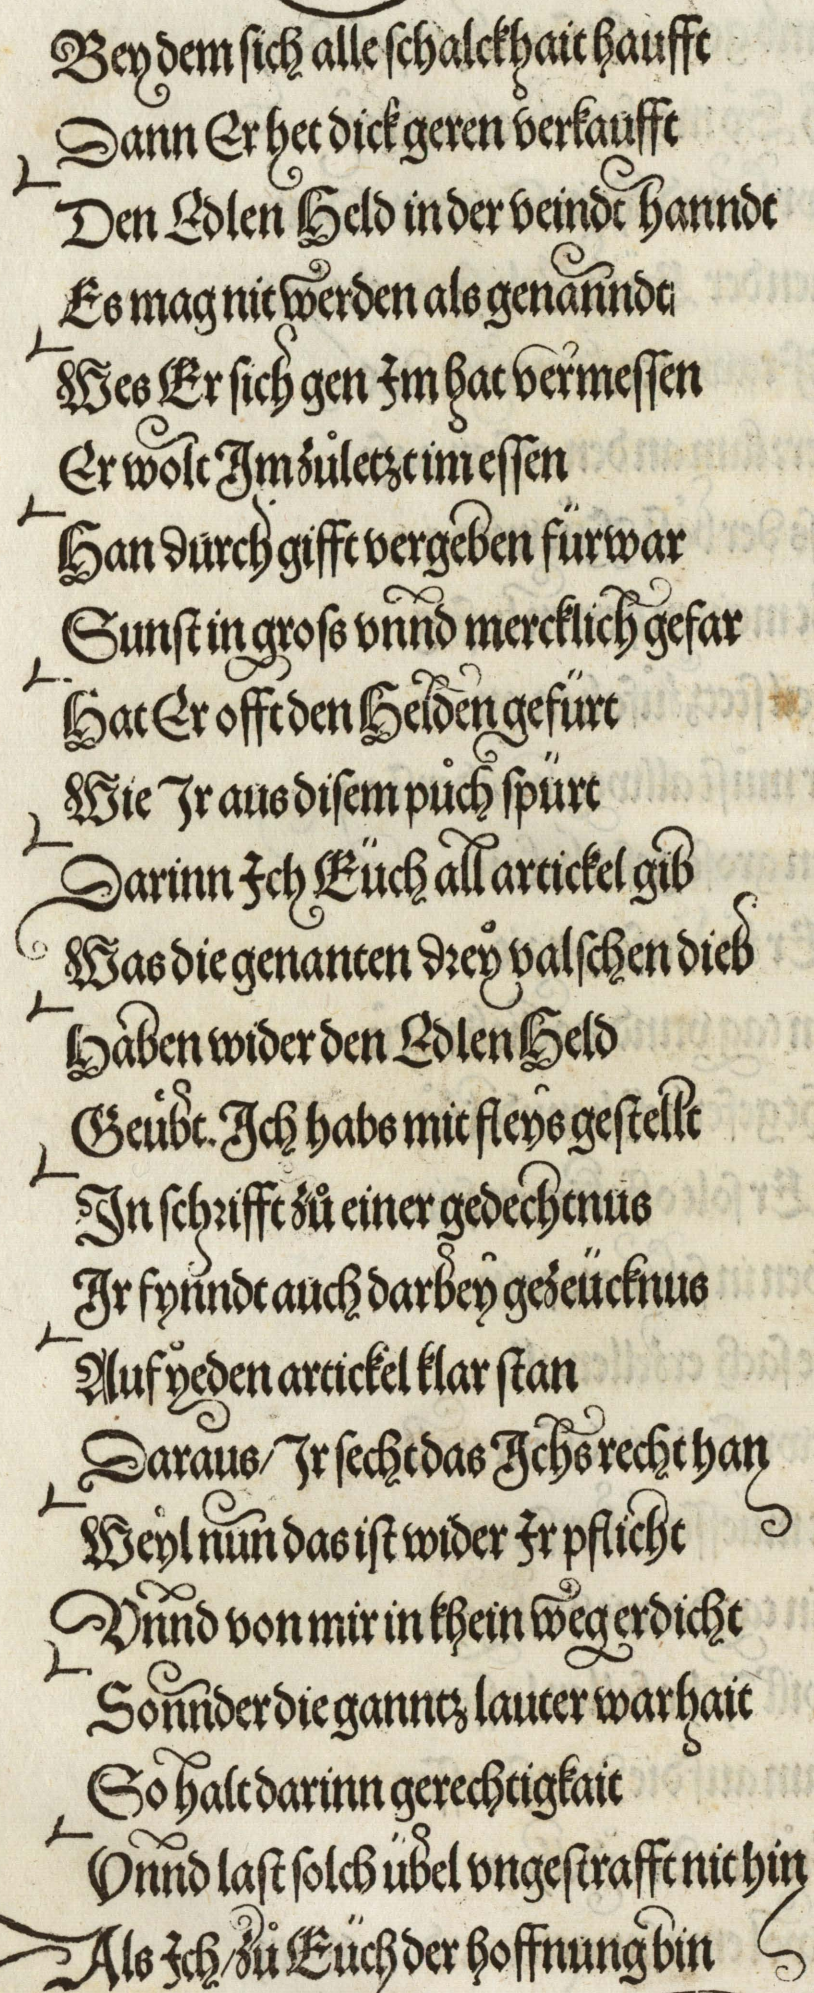 Bey dem sich alle schalckhait haufft
Dann Er het dick geren verkaufft
Den Edlen Held in der veindt hanndt
Es mag nit werden als genanndt
Wes Er sich gen Im hat vermessen
Er wolt Im zůletzt im essen
Han durch gifft vergeben fürwar
Sunst in gross vnnd mercklich gefar
Hat Er offt den Helden gefürt
Wie Ir aus disem půch spürt
Darinn Ich Eüch all artickel gib
Was die genanten drey valschen dieb
Haben wider den Edlen Held
Geübt. Ich habs mit fleys gestellt
In schrifft zů einer gedechtnus
Ir fynndt auch darbey gezeücknus
Auf yeden artickel klar stan
Daraus/ Ir secht das Ichs recht han
Weyl nun das ist wider Ir pflicht
Vnnd von mir in khein weg erdicht
Sonnder die ganntz lauter warhait
So halt darinn gerechtigkait
Vnnd last solch übel vngestrafft nit hin
Als Ich zů Eüch der hoffnung bin